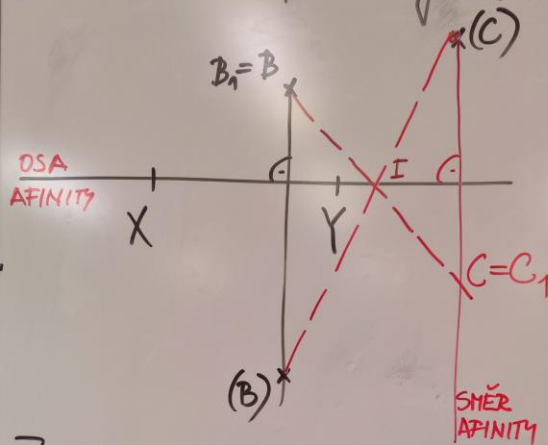 (C)
B₁=B
OSA
AFINITY
I
X
Y
C=C₁
(B)
SMĚR
AFINITY